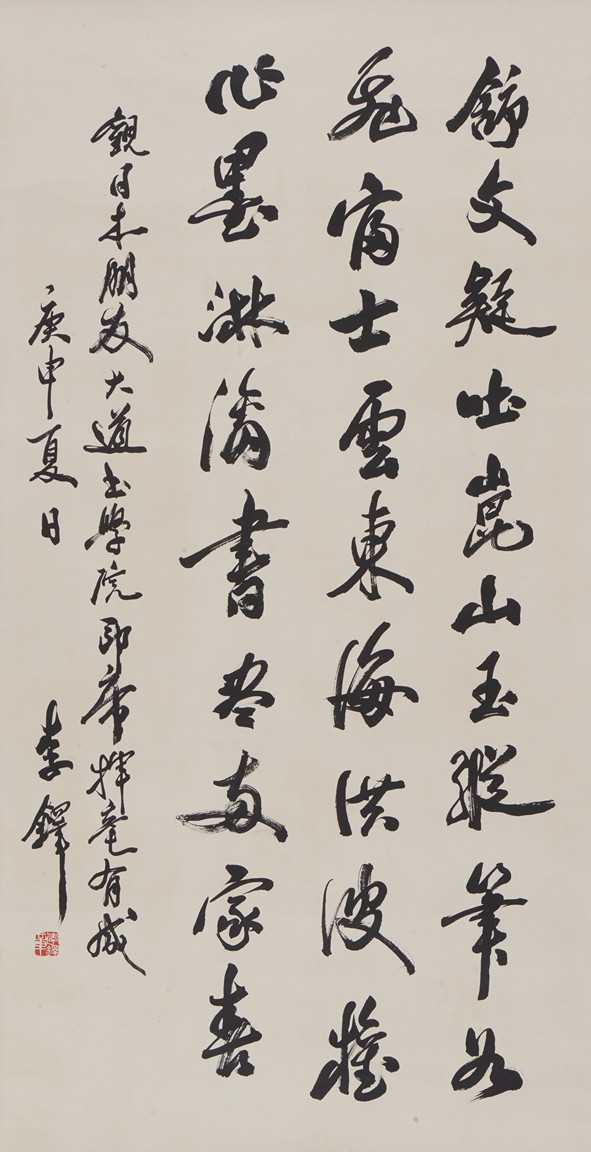 舒文疑吐崑山玉縱筆如
飛富士雲東海洪波權
作墨淋漓書尽兩家春
觀日本朋友大道书學院即席揮毫有感
庚申夏日 李鐸